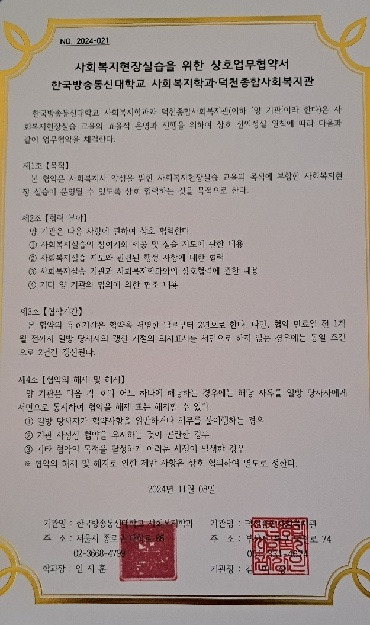 NO. 2024-021
사회복지현장실습을 위한 상호업무협약서
한국방송통신대학교 사회복지학과·덕천종합사회복지관
한국방송통신대학교 사회복지학과와 덕천종합사회복지관(이하 '양 기관'이라 한다)은 사
회복지현장실습 교육의 효율적 운영과 진행을 위하여 상호 신의성실 원칙에 따라 다음과
같이 업무협약을 체결한다.
제1조 [목적]
본 협약은 사회복지사 양성을 위한 사회복지현장실습 교육의 목적에 부합한 사회복지현
장 실습이 운영될 수 있도록 상호 협력하는 것을 목적으로 한다.
제2조 [협력 분야]
양 기관은 다음 사항에 관하여 상호 협력한다.
① 사회복지실습의 참여기회 제공 및 실습 지도에 관한 내용
② 사회복지실습 지도와 관련된 행정 사항에 대한 협력
③ 사회복지실습 기관과 사회복지학과와의 상호협력에 관한 내용
④ 기타 양 기관의 협의에 의한 협조 내용
제3조 [협약기간]
본 협약의 유효기간은 협약을 체결한 날로부터 2년으로 한다. 다만, 협약 만료일 전 1개
월 전까지 일방 당사자의 갱신 거절의 의사표시를 서면으로 하지 않는 경우에는 동일 조건
으로 2년간 갱신된다.
제4조 [협약의 해지 및 해제]
양 기관은 다음 각 호의 어느 하나에 해당하는 경우에는 해당 사유를 일방 당사자에게
서면으로 통지하여 협약을 해지 또는 해제할 수 있다.
① 일방 당사자가 협약사항을 위반하거나 의무를 불이행하는 경우
② 기관 사정상 협약을 유지하는 것이 곤란한 경우
③ 기타 협약의 목적을 달성하기 어려운 사정이 발생한 경우
※ 협약의 해지 및 해제로 인한 제반 사항은 상호 협의하여 별도로 정한다.
2024년 11월 08일
기관명 : 한국방송통신대학교 사회복지학과
주 소 : 서울시 종로구 86
02-3668-4799
학과장 :
기관명 : 덕천종합사회복지관
주 소 : 74
기관장 :